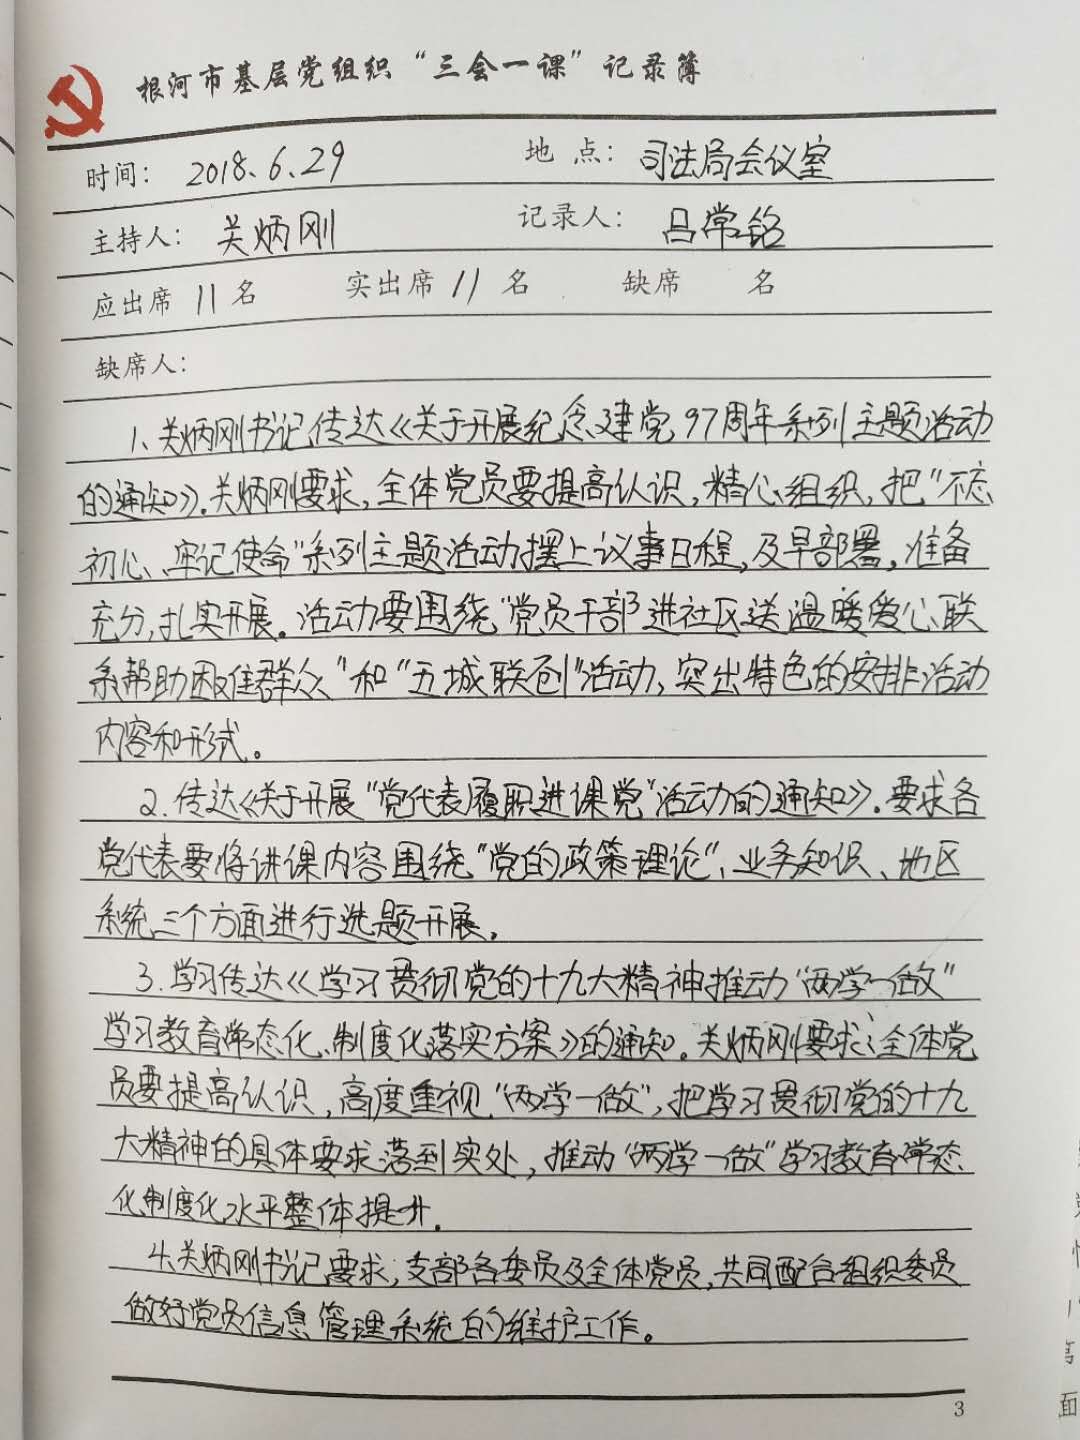 根河市基层党组织“三会一课”记录簿
时间：2018.6.29 地点：司法局会议室
主持人：关炳刚 记录人：吕常铭
应出席11名 实出席11名 缺席 名
缺席人：
1、关炳刚书记传达《关于开展纪念建党97周年系列主题活动
的通知》。关炳刚要求，全体党员要提高认识，精心组织，把“不忘
初心、牢记使命”系列主题活动摆上议事日程，及早部署，准备
充分，扎实开展。活动要围绕“党员干部进社区送温暖爱心联
系帮助困难群众”和“五城联创”活动，突出特色的安排活动
内容和形式。
2.传达《关于开展“党代表履职进课党”活动的通知》。要求各
党代表要将讲课内容围绕“党的政策理论”，业务知识、地区
系统三个方面进行选题开展。
3.学习传达《学习贯彻党的十九大精神推动“两学一做”
学习教育常态化、制度化落实方案》的通知。关炳刚要求：全体党
员要提高认识，高度重视“两学一做”，把学习贯彻党的十九
大精神的具体要求落到实处，推动“两学一做”学习教育常态
化制度化水平整体提升。
4.关炳刚书记要求；支部各委员及全体党员，共同配合组织委员
做好党员信息管理系统的维护工作。
3
面